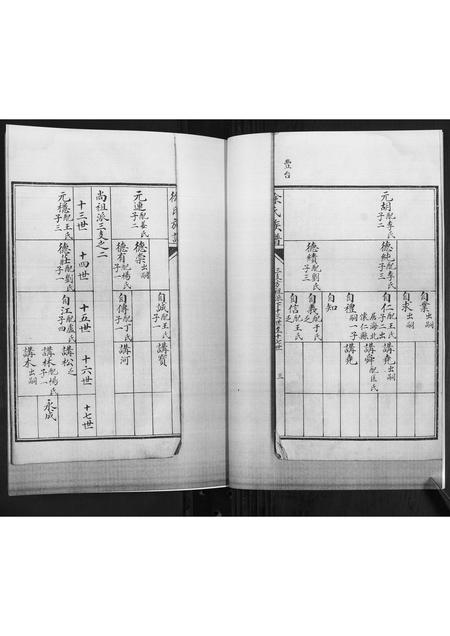 豊台
元胡配李氏子二
德純配李氏子三
自業出嗣
自求出嗣
自仁配王氏子二出居海北懷仁縣
講堯出嗣
講舜配匡氏
自禮嗣一子
講堯
德績配劉氏子三
自知
自義配于氏之
自信配王氏之
徐氏族譜
三
元連配姜氏子二
德崇出嗣
德有配楊氏子一
自誠配王氏子一
講賓
自傳配丁氏子一
講河
尚祖派三支之二
十三世
十四世
十五世
十六世
十七世
元穩配王氏子三
德莊配劉氏子一
自江配盧氏子四
講松之
講林配楊氏子一
講木出嗣
永成